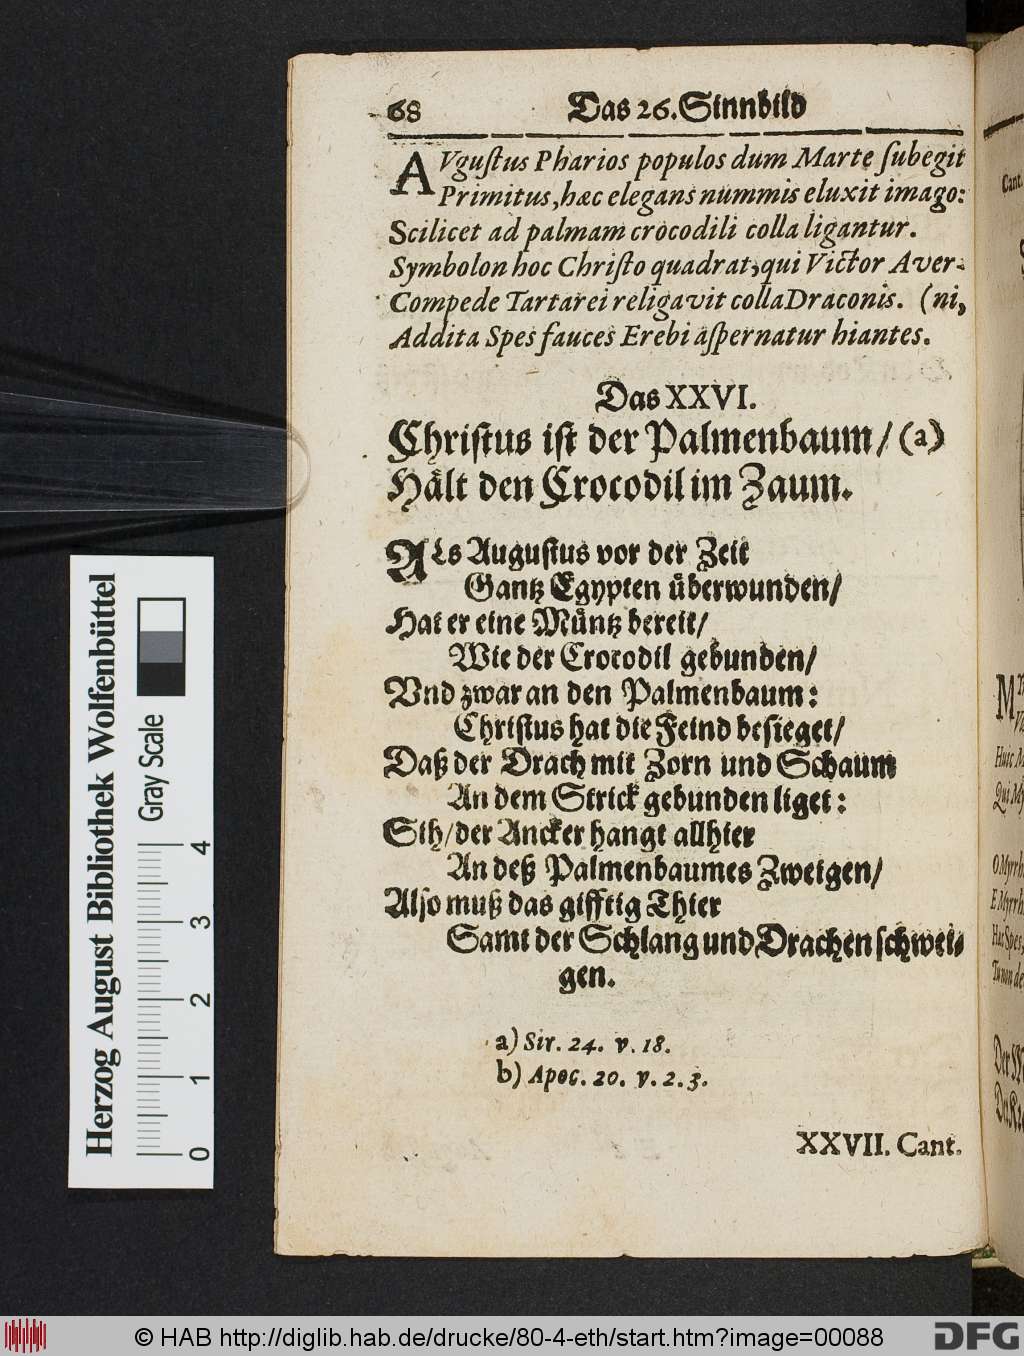 68 Das 26. Sinnbild
AVguſtus Pharios populos dum Marte ſubegit
Primitus, hæc elegans nummis eluxit imago:
Scilicet ad palmam crocodili colla ligantur.
Symbolon hoc Chriſto quadrat, qui Victor Aver-
Compede Tartarei religavit colla Draconis. (ni,
Addita Spes fauces Erebi aſpernatur hiantes.
Das XXVI.
Chriſtus iſt der Palmenbaum/ (a)
Hält den Crocodil im Zaum.
ALs Auguſtus vor der Zeit
Gantz Egypten überwunden/
Hat er eine Müntz bereit/
Wie der Crocodil gebunden/
Vnd zwar an den Palmenbaum:
Chriſtus hat die Feind beſieget/
Daß der Drach mit Zorn und Schaum
An dem Strick gebunden liget:
Sih/ der Ancker hangt allhier
An deß Palmenbaumes Zweigen/
Alſo muß das gifftig Thier
Samt der Schlang und Drachen ſchwei-
gen.
a) Sir. 24. v. 18.
b) Apoc. 20. v. 2. 3.
XXVII. Cant.
Cant.
Huic
Qui
O Myrrh
E Myrrh
Hæc Spes,
Tu non de
Herzog August Bibliothek Wolfenbüttel
Gray Scale
0 1 2 3 4
© HAB http://diglib.hab.de/drucke/80-4-eth/start.htm?image=00088
DFG